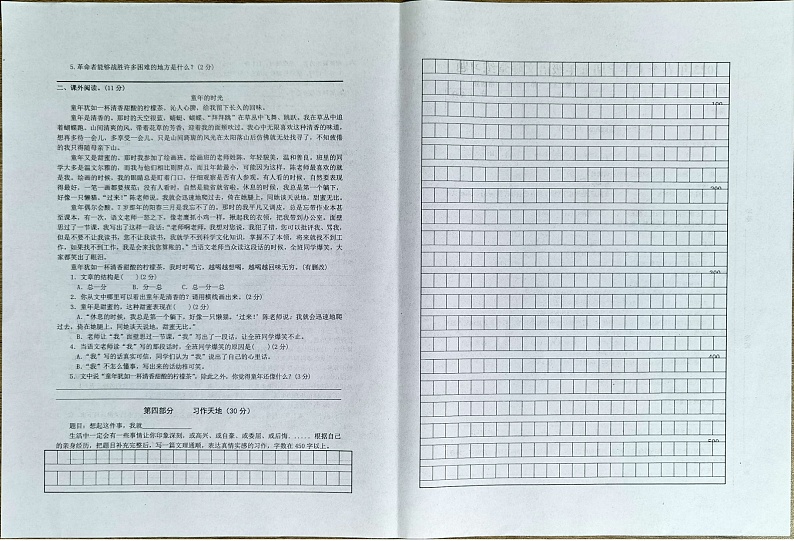 5.革命者能够战胜许多困难的地方是什么？(2 分)
二、课外阅读。(11 分)
童年的时光
童年犹如一杯清香甜酸的柠檬茶，沁人心脾，给我留下长久的回味。
童年是清香的。那时的天空很蓝，蜻蜓、蝴蝶、“拜拜跳”在草丛中飞舞、跳跃。我在草丛中追
着蝴蝶跑。山间清爽的风，带着花草的芳香，迎着我的面颊吹过。我心中无限喜欢这种清香的味道，
想再多待一会儿，多享受一会儿。只是山间滴滴的风光在太阳落山后仿佛就无处找寻了，不知疲倦
的我只得随母亲下山。
童年又是甜蜜的。那时我参加了绘画班。绘画班的老师姓陈，年轻貌美，温和善良。班里的同
学大多是温文尔雅的，而我与他们相比则野点，而且年龄最小，可能因为这样，陈老师最喜欢的就
是我。绘画的时候，我的眼睛总是盯着门口，仔细观察是否有人参观。有人看的时候，自然要表现
得最好，一笔一画都要规范；没有人看时，自然是能省就省啦。休息的时候，我总是第一个躺下，
好像一只懒猫。“过来！”陈老师说。我就会迅速地爬过去，倚在她腿上，同她谈天说地，甜蜜无比。
童年偶尔会酸。7 岁那年的阳春三月是我忘不了的。那时的我平凡又调皮，总是忘带作业本甚
至课本。有一次，语文老师一怒之下，像老鹰抓小鸡一样，揪起我的衣领，把我带到办公室。面壁
思过了一节课，我写出了这样一段话：“老师啊老师，我想对您说，我犯了错，您可以批评我、骂我，
但是不要不让我读书。您不让我读书，我就学不到科学文化知识，掌握不了本领，将来就找不到工
作，如果找不到工作，我是会来找您算账的。”当语文老师当众读这段话的时候，全班同学爆笑，大
家都笑出了眼泪。
童年犹如一杯清香甜酸的柠檬茶，我时时喝它，越喝越想喝，越喝越回味无穷。（有删改）
1. 文章的结构是(　　)(2 分)
A. 总—分　　B. 分—总　　C. 总—分—总
2. 你从文中哪里可以看出童年是清香的？请用横线画出来。(2 分)
3. 童年是甜蜜的，这种甜蜜表现在(　　)(2 分)
A.“休息的时候，我总是第一个躺下，好像一只懒猫。‘过来！’陈老师说；我就会迅速地爬
过去，倚在她腿上，同她谈天说地，甜蜜无比。”
B. 老师让“我”面壁思过一节课，“我”写出了一段话，让全班同学爆笑不止。
4. 当语文老师读“我”写的那段话时，全班同学爆笑的原因是(　　)(2 分)
A.“我”写的话真实可信，同学们认为“我”说出了自己的心里话。
B.“我”不怎么懂事，写出来的话幼稚可笑。
5. 文中说“童年犹如一杯清香甜酸的柠檬茶”，除此之外，你觉得童年还像什么？(3 分)
第四部分　　习作天地（30 分）
题目：想起这件事，我就
生活中一定会有一些事情让你印象深刻，或高兴、或自豪、或委屈、或后悔......根据自己
的亲身经历，把题目补充完整后，写一篇文理通顺，表达真情实感的习作，字数在 450 字以上。
100
200
300
400
500